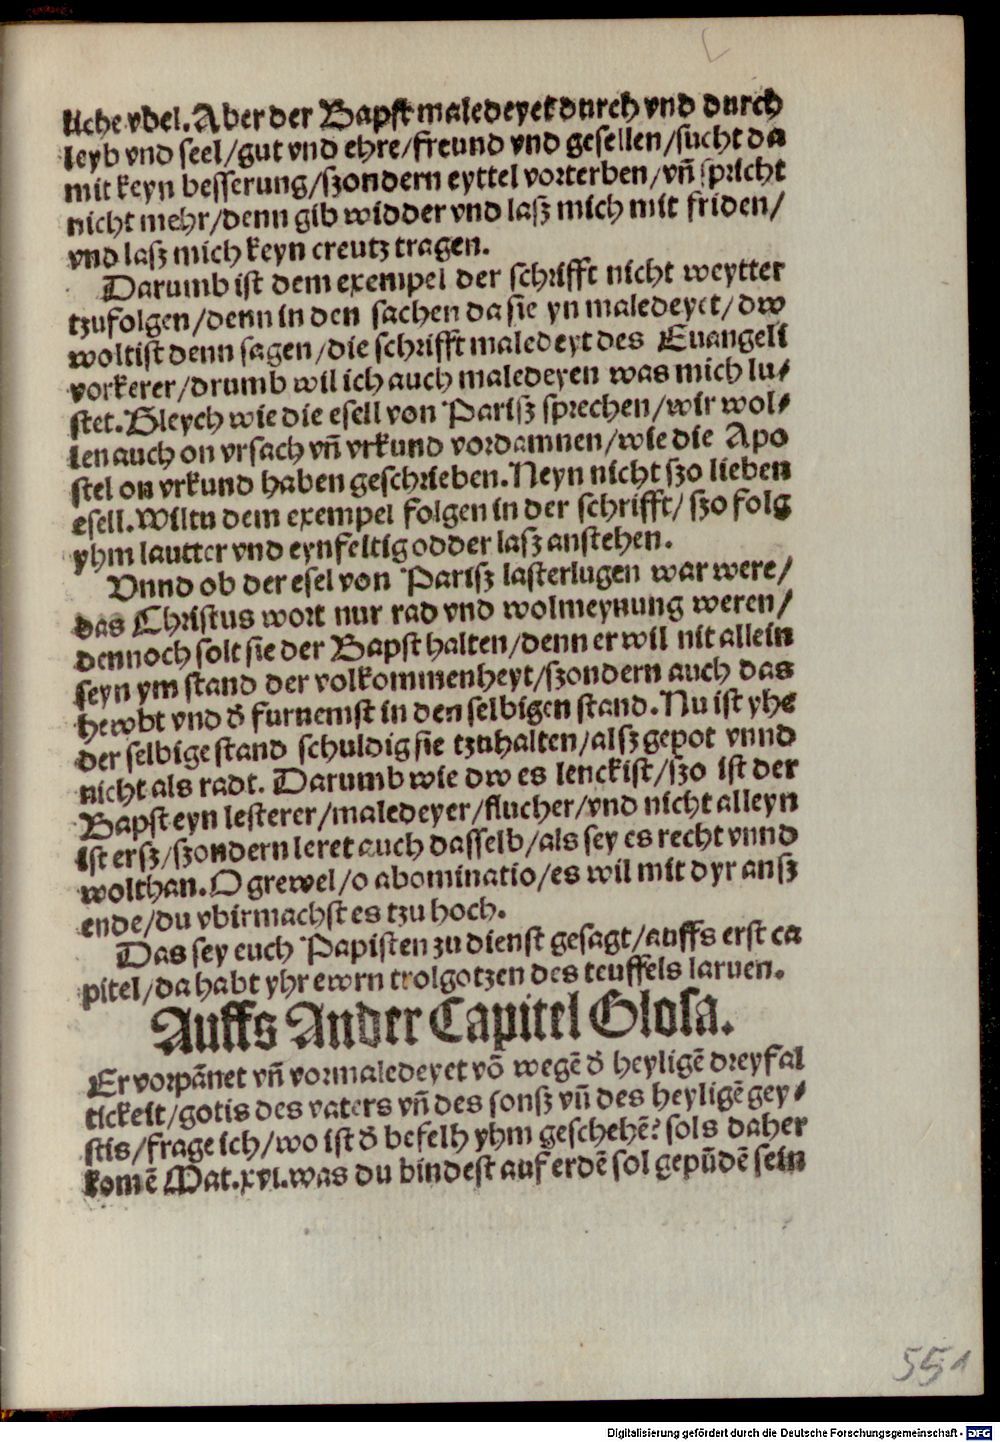 liche vbel. Aber der Bapst maledeyet durch vnd durch
leyb vnd seel/gut vnd ehre/freund vnd gesellen/sucht da
mit keyn besserung/szondern eyttel vorterben/vn̄ spricht
nicht mehr/denn gib widder vnd lasz mich mit friden/
vnd lasz mich keyn creutz tragen.
Darumb ist dem exempel der schrifft nicht weytter
tzufolgen/denn in den sachen da sie yn maledeyet/dw
woltist denn sagen/die schrifft maledeyt des Euangeli
vorkerer/drumb wil ich auch maledeyen was mich lu⸗
stet. Gleych wie die esell von Parisz sprechen/wir wol⸗
len auch on vrsach vn̄ vrkund vordamnen/wie die Apo
stel on vrkund haben geschrieben. Neyn nicht szo lieben
esell. Wiltu dem exempel folgen in der schrifft/szo folg
yhm lautter vnd eynfeltig odder lasz anstehen.
Vnnd ob der esel von Parisz lasterlugen war were/
das Christus wort nur rad vnd wolmeynung weren/
dennoch solt sie der Bapst halten/denn er wil nit allein
seyn ym stand der volkommenheyt/szondern auch das
hewbt vnd d̄ furnemst in den selbigen stand. Nu ist yhe
der selbige stand schuldig sie tzuhalten/alsz gepot vnnd
nicht als radt. Darumb wie dw es lenckist/szo ist der
Bapst eyn lesterer/maledeyer/flucher/vnd nicht alleyn
ist ersz/szondern leret auch dasselb/als sey es recht vnnd
wolthan. O grewel/o abominatio/es wil mit dyr ansz
ende/du vbirmachst es tzu hoch.
Das sey euch Papisten zu dienst gesagt/auffs erst ca
pitel/da habt yhr ewrn trolgotzen des teuffels laruen.
Auffs Ander Capitel Glosa.
Er vorpānet vn̄ vormaledeyet vō wegē d̄ heyligē dreyfal
tickeit/gotis des vaters vn̄ des sonsz vn̄ des heyligē gey⸗
stis/frage ich/wo ist d̄ befelh yhm geschehē? sols daher
komē Mat. xvi. was du bindest auf erdē sol gepūdē sein
551
Digitalisierung gefördert durch die Deutsche Forschungsgemeinschaft - DFG